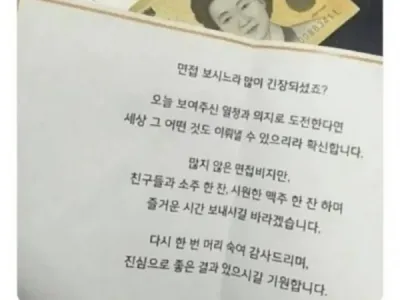 면접 보시느라 많이 긴장되셨죠?
오늘 보여주신 열정과 의지로 도전한다면
세상 그 어떤 것도 이뤄낼 수 있으리라 확신합니다.
많지 않은 면접비지만,
친구들과 소주 한 잔, 시원한 맥주 한 잔 하며
즐거운 시간 보내시길 바라겠습니다.
다시 한 번 머리 숙여 감사드리며,
진심으로 좋은 결과 있으시길 기원합니다.